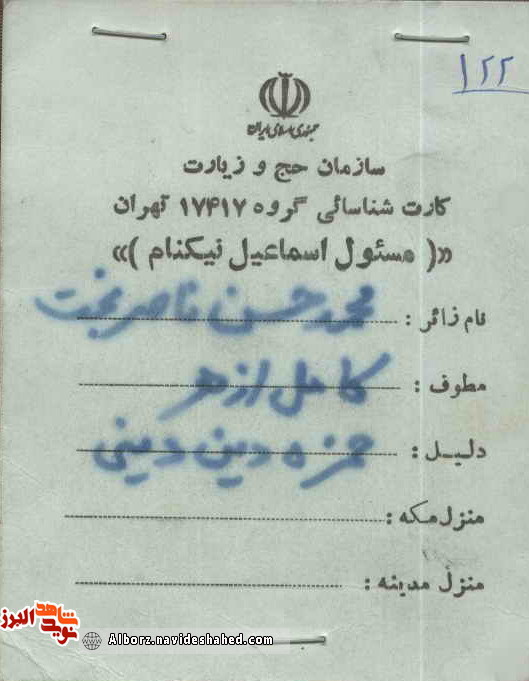 ۱۲۲
جمهوری اسلامی ایران
سازمان حج و زیارت
کارت شناسائی گروه ۱۷۴۱۷ تهران
«( مسئول اسماعیل نیکنام )»
نام زائر : محمد حسن ناصربخت
مطوف : کامل ازهر
دلیل : حمزه دین دینی
منزل مکه :
منزل مدینه :
نوید شاهد البرز
Alborz.navideshahed.com